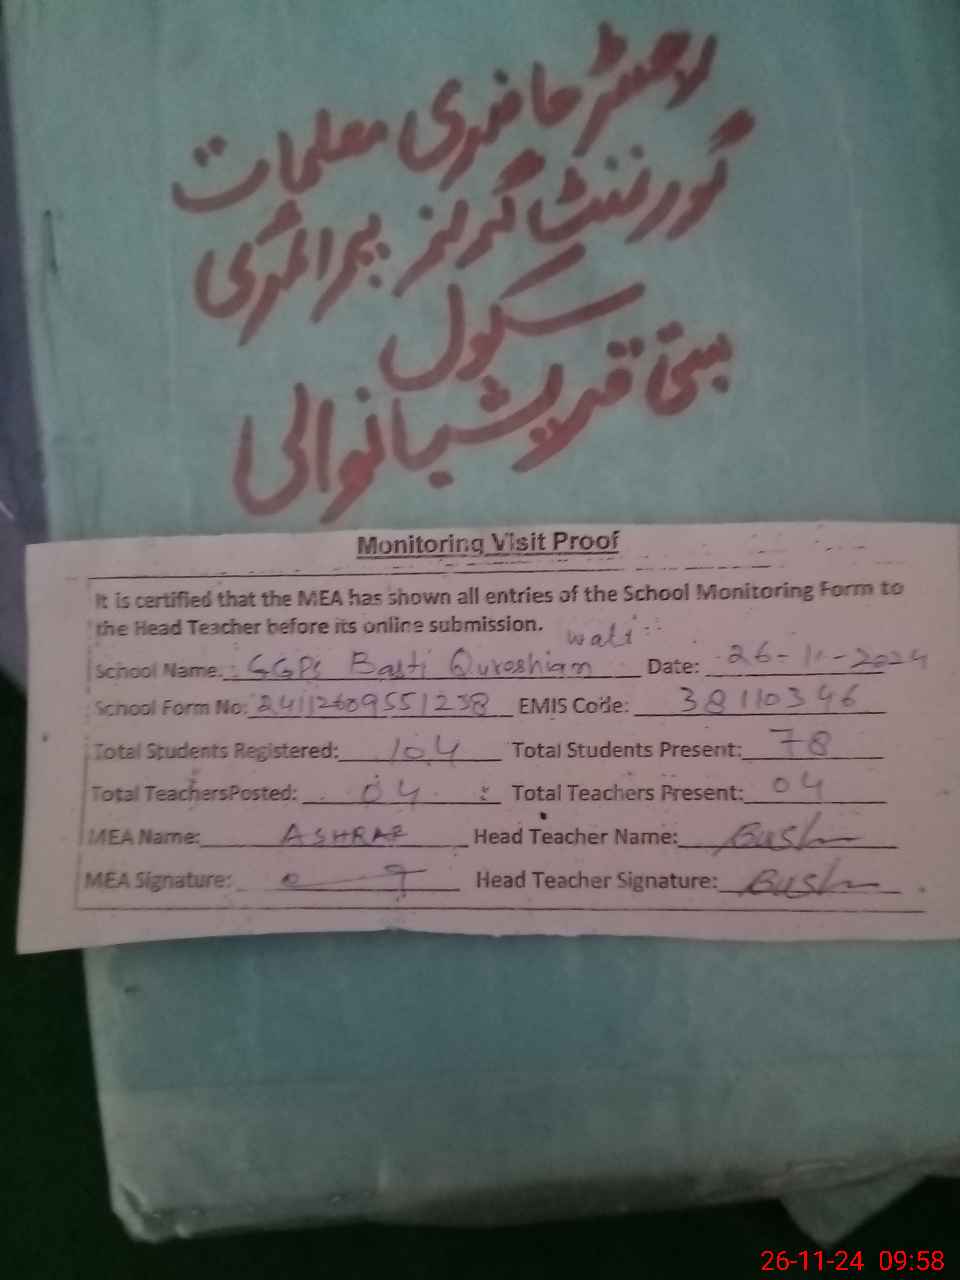 رجسٹر حاضری معلمات
گورنمنٹ گرلز پرائمری
سکول
بستی قریشیانوالی
Monitoring Visit Proof
It is certified that the MEA has shown all entries of the School Monitoring Form to
the Head Teacher before its online submission.
wali
School Name: GGPS Basti Qureshian Date: 26-11-2024
School Form No: 24112609551238 EMIS Code: 38110346
Total Students Registered: 104 Total Students Present: 78
Total TeachersPosted: 04 Total Teachers Present: 04
MEA Name: ASHRAF Head Teacher Name:
MEA Signature: Head Teacher Signature:
26-11-24 09:58